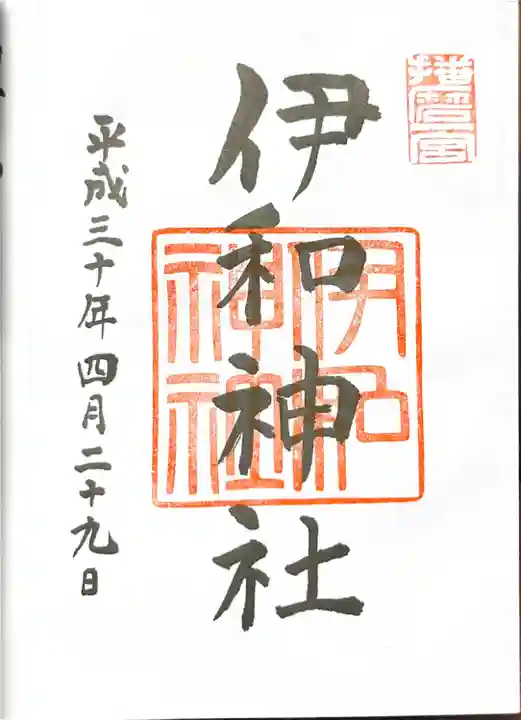 播磨宮
伊和神社
伊和神社
平成三十年四月二十九日